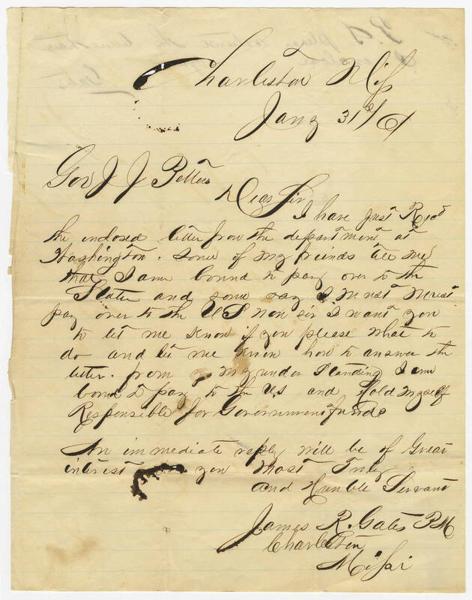 Charleston Miss
Jany 31st/61
Gov J J Pettus
Dear Sir
I have just Recd
the enclosed letter from the department at
Washington. Some of my friends tell me
that I am bound to pay over to the
State and some say I must
pay over to the US now sir I want you
to let me know if you please what to
do and let me know how to answer the
letter. from my understanding I am
bond to pay to the US and hold myself
Responsible for Government funds
An immediate reply will be of Great
interest you Most Truly
and Humble Servant
James R. Gates P.M
Charleston
Missi